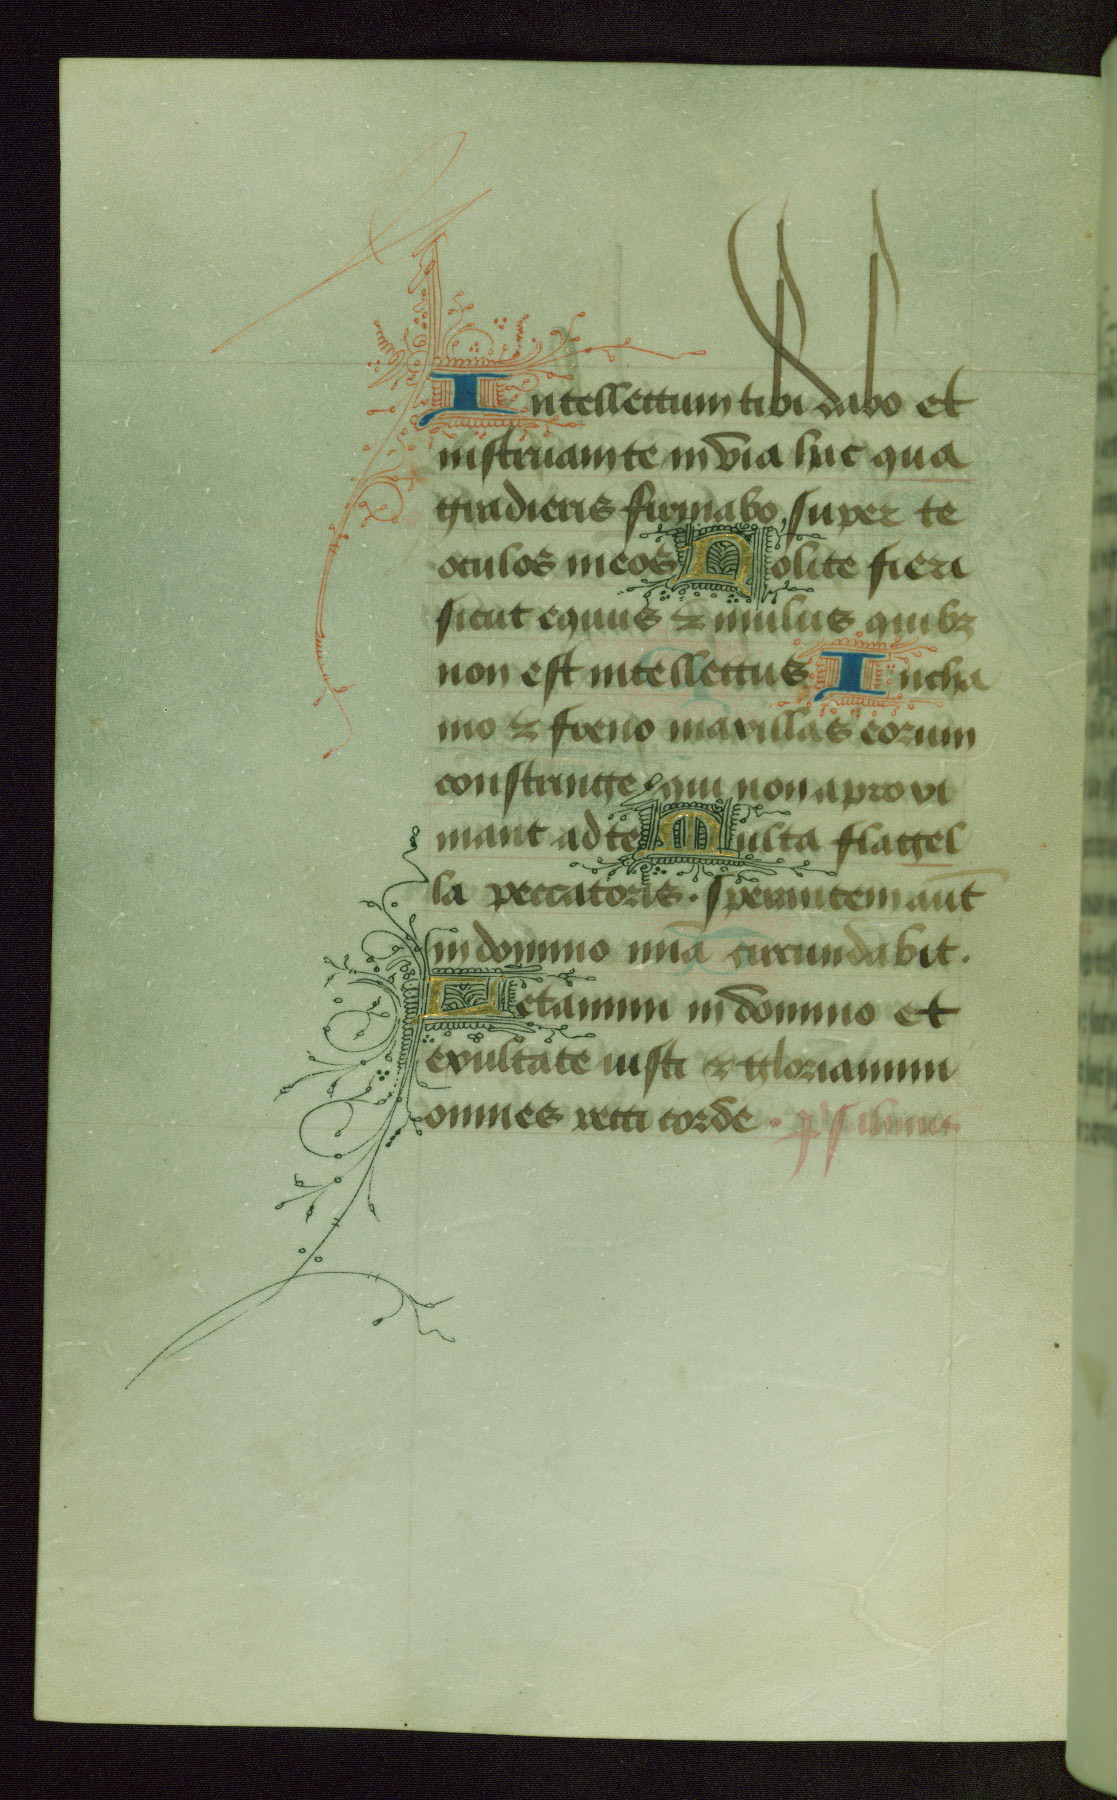 Intellectum tibi dabo et
instruam te in via hac qua
gradieris firmabo super te
oculos meos Nolite fieri
sicut equus ⁊ mulus quibꝫ
non est intellectus In cha
mo ⁊ freno maxillas eorum
constringe qui non aproxi
mant ad te Multa flagel
la peccatoris· sperantem aut̄
in domino mīa circundabit.
Letamini in domino et
exultate iusti ⁊ gloriamini
omnes recti corde · psalmus